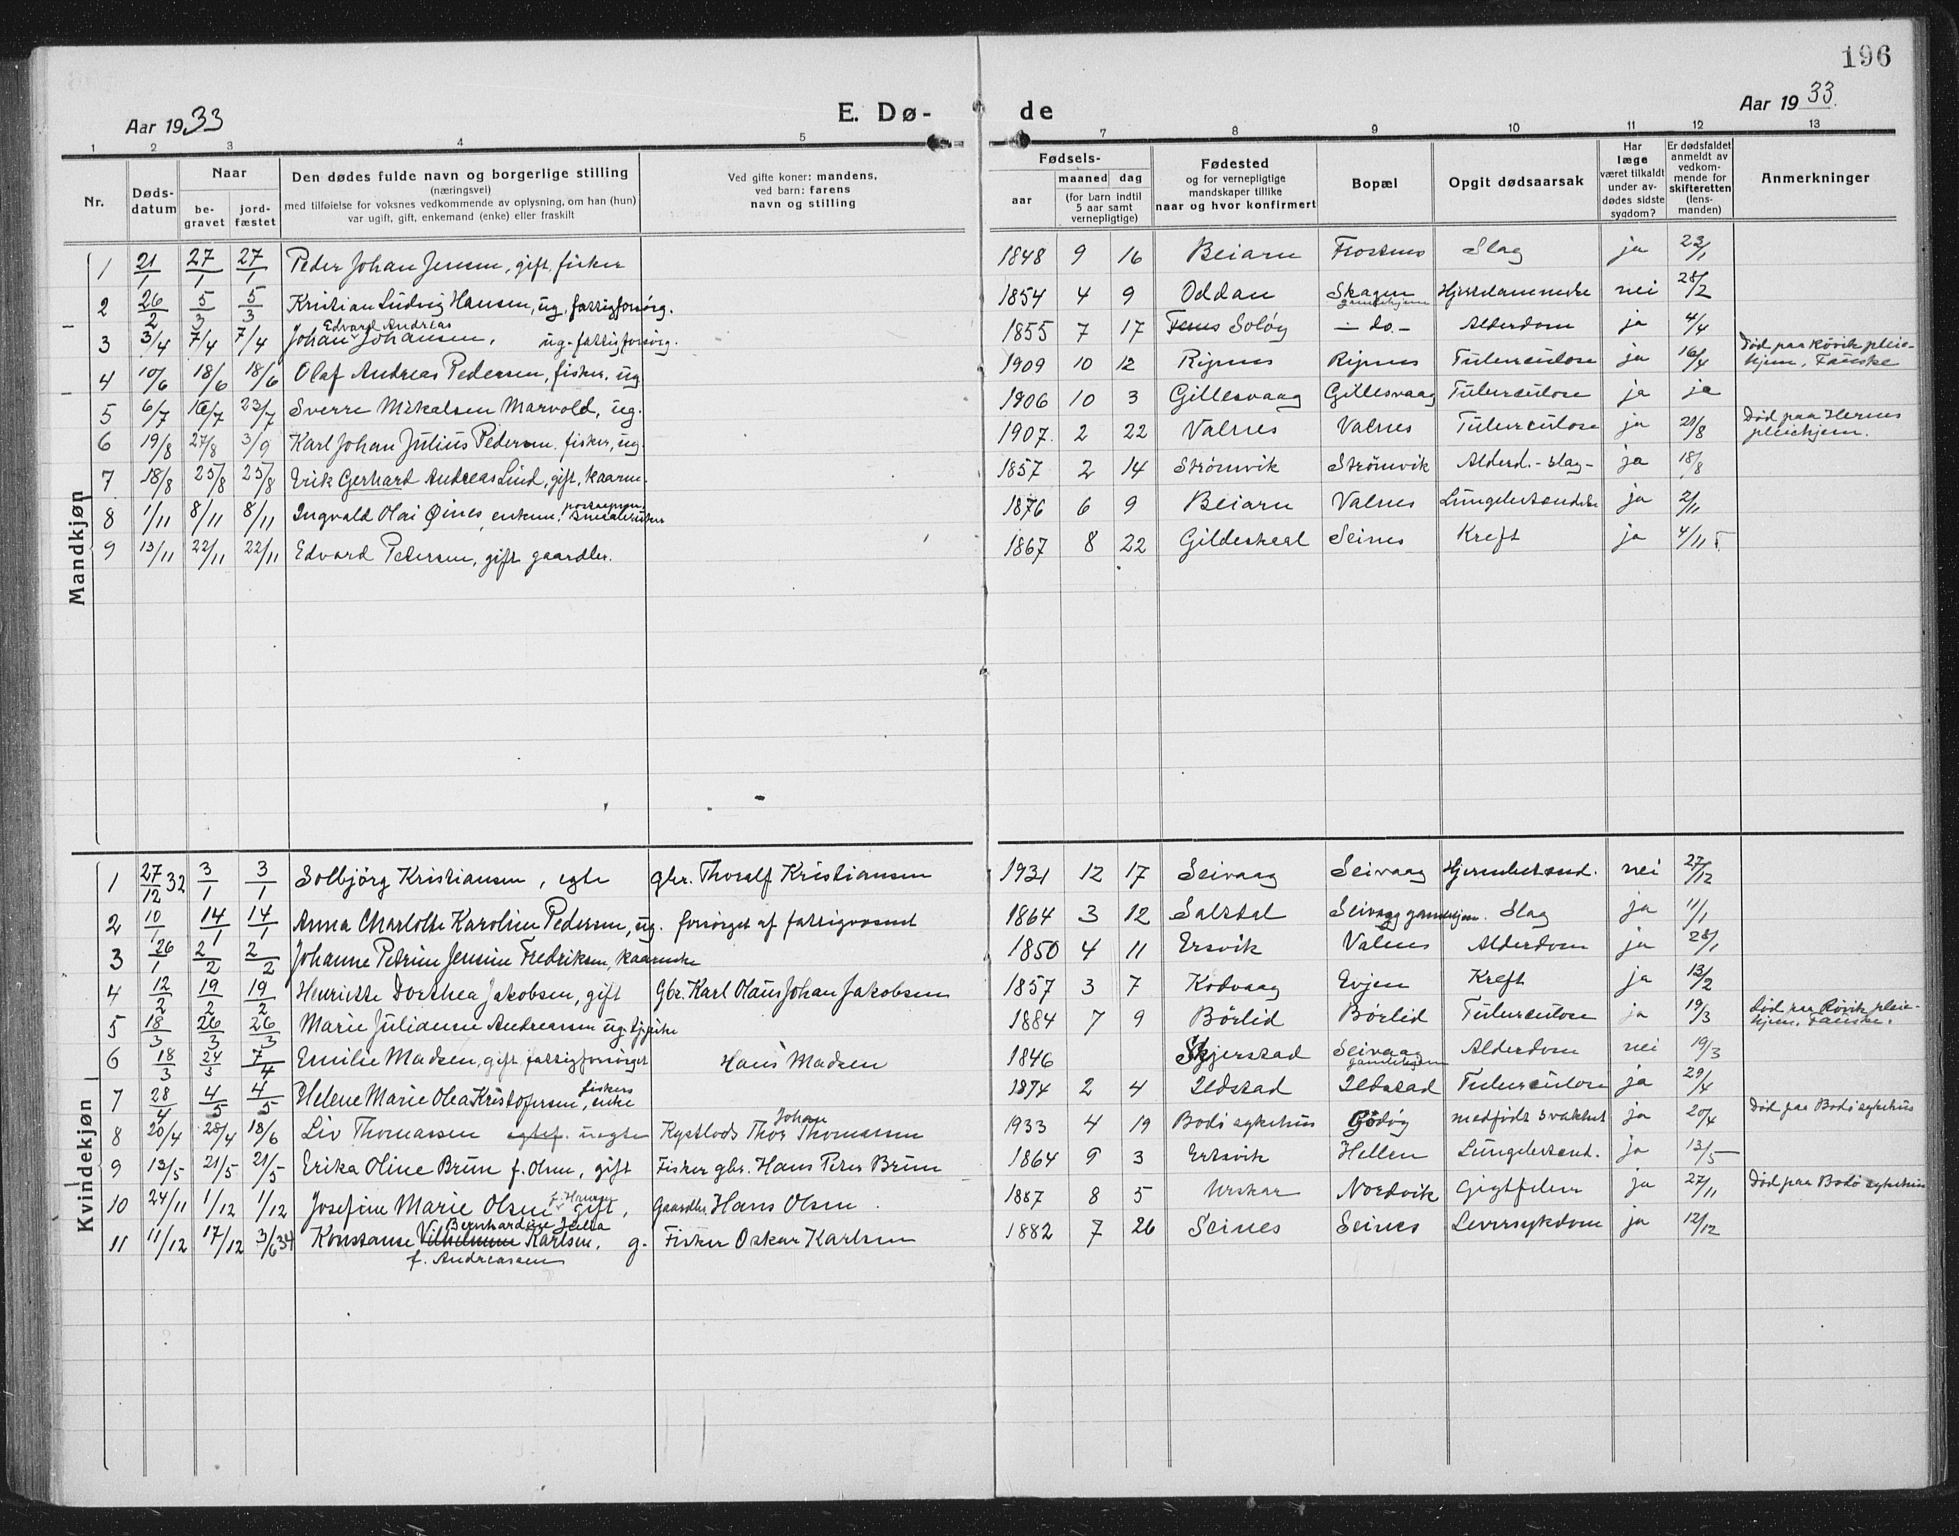 196
Aar 1933
E. Dø-
de
Aar 1933.
1 2 3 4 5 7 8 9 10 11 12 13
Nr.
Døds-
datum
Naar
be-
gravet
jord-
fæstet
Den dødes fulde navn og borgerlige stilling
(næringsvei)
med tilføielse for voksnes vedkommende av oplysning, om han (hun)
var ugift, gift, enkemand (enke) eller fraskilt
Ved gifte koner: mandens,
ved barn: farens
navn og stilling
Fødsels-
aar
maaned dag
(for barn indtil
5 aar samt
vernepligtige)
Fødested
og for vernepligtige
mandskaper tillike
naar og hvor konfirmert
Bopæl
Opgit dødsaarsak
Har
læge
været tilkaldt
under av-
dødes sidste
sygdom?
Er dødsfaldet
anmeldt av
vedkom-
mende for
skifteretten
(lens-
manden)
Anmerkninger
Mandkjøn
1 21/1 27/1 27/1 Peder Johan Jensen, gift, fisker 1848 9 16 Beiarn Slag ja 23/1
2 26/2 5/3 5/3 Kristian Ludvig Hansen, ug. fattigforsørg. 1854 4 9 Oddan Skagen gamlehjem nei 28/2
3 3/4 7/4 7/4 Johan Edvard Andreas Johansen, ug. fattigforsørg. 1855 7 17 Soløy – do – Alderdom ja 4/4
4 10/6 18/6 18/6 Olaf Andreas Pedersen, fisker, ug. 1909 10 12 Ripnes Ripnes Tuberculose ja 16/4 Død paa Røvik pleie-
hjem, Fauske
5 6/7 16/7 23/7 Sverre Mikalsen Marvold, ug. 1906 10 3 Gillesvaag Gillesvaag Tuberculose ja ja
6 19/8 27/8 3/9 Karl Johan Julius Pedersen, fisker, ug. 1907. 2 22 Valnes Valnes Tuberculose ja 21/8 Død paa Hernes
pleiehjem.
7 18/8 25/8 25/8 Erik Gerhard Andreas Lind, gift, kaarm. 1857 2 14 Strømvik Strømvik Alderd. – slag – ja 18/8
8 1/11 8/11 8/11 Ingvald Olai Øines, enkem. 1876 6 9 Beiarn Valnes Lungebetændelse ja 2/11
9 13/11 22/11 22/11 Edvard Petersen, gift gaardbr. 1867 8 22 Gildeskaal Seines Kreft ja 4/11
Kvindekjøn
1 27/12 32 3/1 3/1 Solbjörg Kristiansen, egte gbr. Thoralf Kristiansen 1931 12 17 Seivaag Seivaag nei 27/12
2 10/1 14/1 14/1 Anna Charlotte Karoline Pedersen, ug. forsørget af fattigvæsenet 1864 3 12 Saltdal Seivaag gamlehjem. Slag ja 11/1
3 26/1 2/2 2/2 Johanne Petrine Jensine Fredriksen, kaarenke 1850 4 11 Ersvik Valnes Alderdom ja 28/1
4 12/2 19/2 19/2 Henriette Dorthea Jakobsen, gift Gbr. Karl Olaus Johan Jakobsen 1857 3 7 Kodvaag Evjen Kreft ja 13/2
5 18/3 26/3 26/3 Marie Julianne Andreassen ug. tjpike 1884 7 9 Börlid Börlid Tuberculose ja 19/3 Død paa Røvik pleie-
hjem, Fauske.
6 18/3 24/3 7/4 Emilie Madsen, gift fattigforsørget Hans Madsen 1846 Skjerstad Seivaag gamlehjem Alderdom nei 19/3
7 28/4 4/5 4/5 Helene Marie Olea Kristofersen, fiskers enke 1874 2 4 Ildstad Ildstad Tuberculose ja 29/4
8 20/4 28/4 18/6 Liv Thomassen uegte Kystlods Thor Johan Thomassen 1933 4 19 Bodø sykehus Godøy medfødt svakhet ja 20/4 Død paa Bodø sykehus
9 13/5 21/5 21/5 Erika Oline Brun f. Olsen, gift Fisker gbr. Hans Peter Brun 1864 9 3 Ertsvik Hellen Lungebetænd. ja 13/5
10 24/11 1/12 1/12 Josefine Marie Olsen f. Hansen gift, Gaardbr. Hans Olsen. 1887 8 5 Nordvik Gigtfeber ja 27/11 Død paa Bodø sykehus
11 11/12 17/12 3/6 34 Konstanse Vilhelmine Bernhardine Julia Karlsen, g. Fisker Oskar Karlsen 1882 7 26 Seines Seines Leversykdom ja 12/12
f. Andreassen